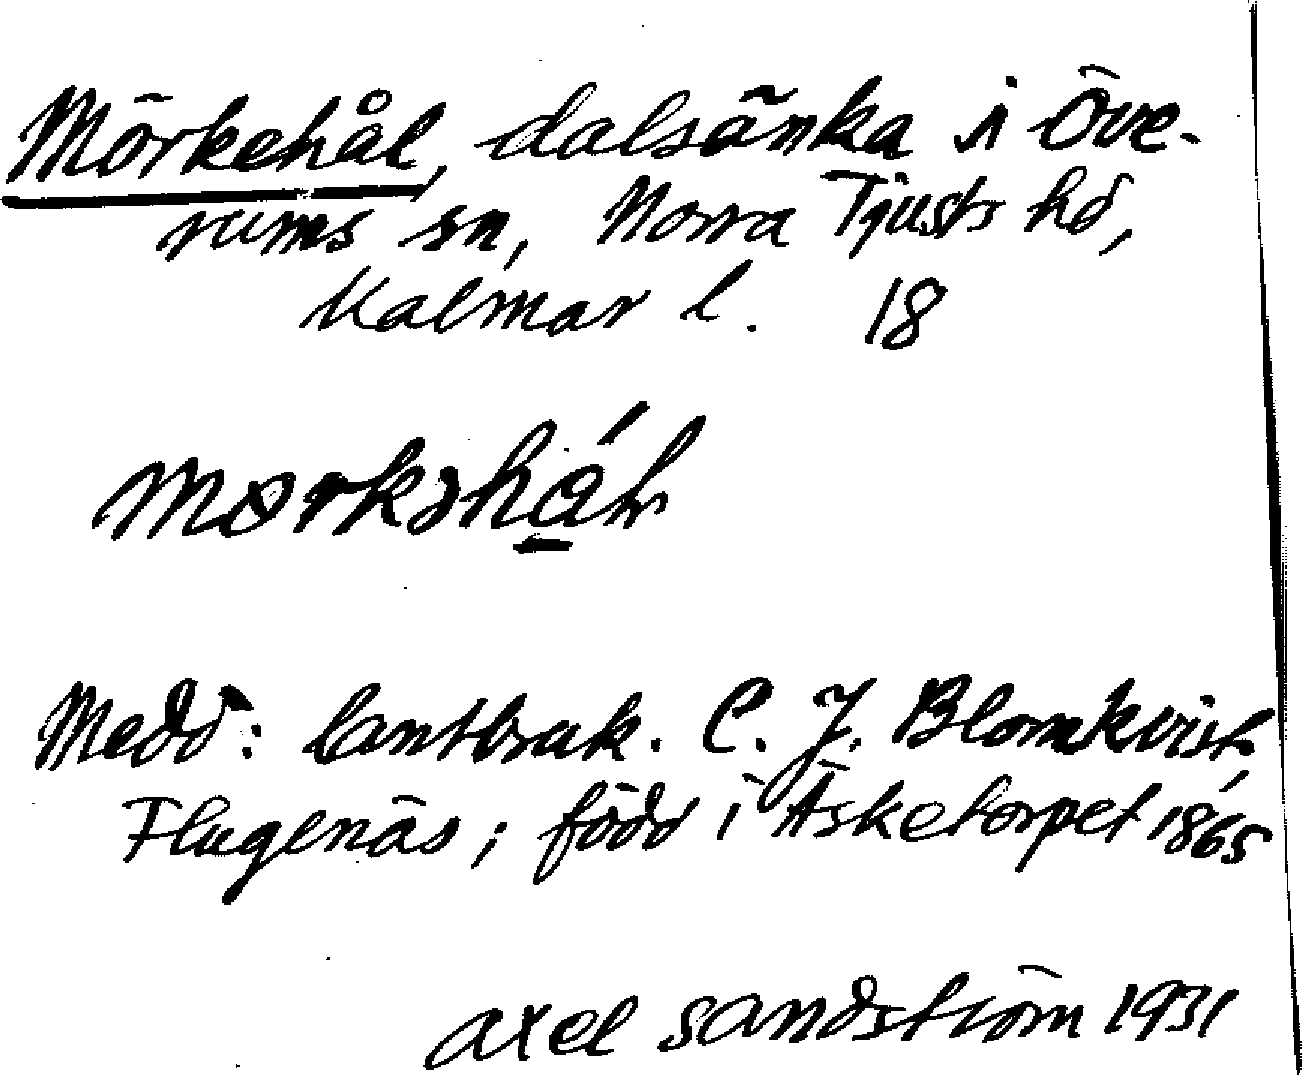 Mörkehål, dalsänka i Öve-
rums sn, Norra Tjusts hd,
Kalmar l. 18
Medd: lantbruk. C. J. Blomkvist,
Flugenäs; född i Äsketorpet 1865
Axel Sandström 1931